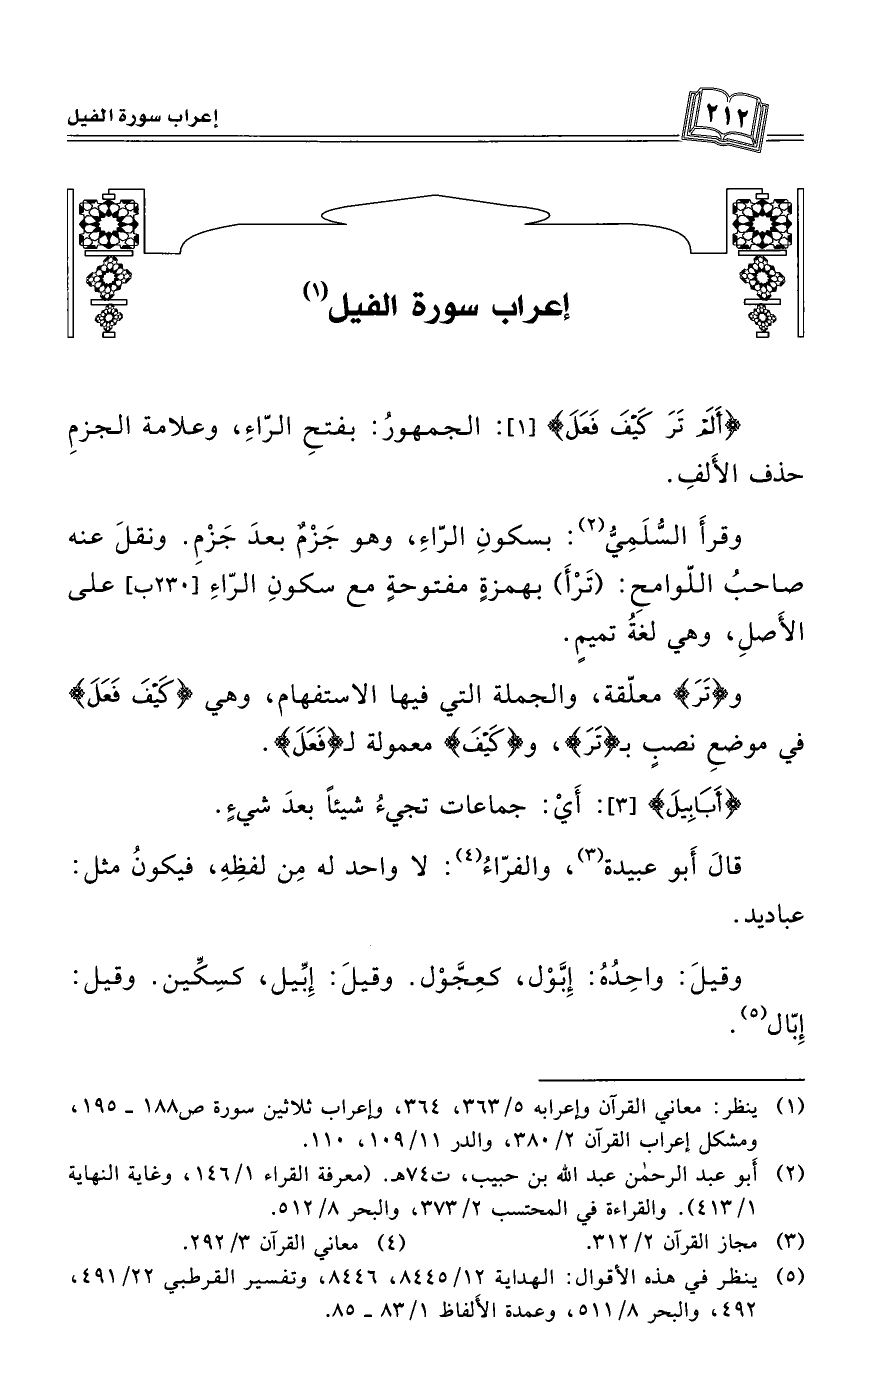 ٢١٢
إعراب سورة الفيل
إعراب سورة الفيل(١)
﴿أَلَمْ تَرَ كَيْفَ فَعَلَ﴾ [١]: الجمهورُ: بفتحِ الرّاءِ، وعلامة الجزمِ
حذف الألفِ.
وقرأَ السُّلَمِيُّ(٢): بسكونِ الرّاءِ، وهو جَزْمٌ بعدَ جَزْمٍ. ونقلَ عنه
صاحبُ اللّوامحِ: (تَرْأَ) بهمزةٍ مفتوحةٍ مع سكونِ الرّاءِ [٢٣٠ب] على
الأصلِ، وهي لغةُ تميمٍ.
و﴿تَرَ﴾ معلّقة، والجملة التي فيها الاستفهام، وهي ﴿كَيْفَ فَعَلَ﴾
في موضعِ نصبٍ بـ﴿تَرَ﴾، و﴿كَيْفَ﴾ معمولة لـ﴿فَعَلَ﴾.
﴿أَبَابِيلَ﴾ [٣]: أَيْ: جماعات تجيءُ شيئاً بعدَ شيءٍ.
قالَ أَبو عبيدة(٣)، والفرّاءُ(٤): لا واحد له مِن لفظِهِ، فيكونُ مثل:
عباديد.
وقيلَ: واحِدُهُ: إِبَّوْل، كعِجَّوْل. وقيلَ: إِبِّيل، كسِكِّين. وقيل:
إِبّال(٥).
(١) ينظر: معاني القرآن وإعرابه ٥/ ٣٦٣، ٣٦٤، وإعراب ثلاثين سورة ص١٨٨ ـ ١٩٥،
ومشكل إعراب القرآن ٢/ ٣٨٠، والدر ١١/ ١٠٩، ١١٠.
(٢) أبو عبد الرحمٰن عبد الله بن حبيب، ت٧٤هـ. (معرفة القراء ١/ ١٤٦، وغاية النهاية
١/ ٤١٣). والقراءة في المحتسب ٢/ ٣٧٣، والبحر ٨/ ٥١٢.
(٣) مجاز القرآن ٢/ ٣١٢. (٤) معاني القرآن ٣/ ٢٩٢.
(٥) ينظر في هذه الأقوال: الهداية ١٢/ ٨٤٤٥، ٨٤٤٦، وتفسير القرطبي ٢٢/ ٤٩١،
٤٩٢، والبحر ٨/ ٥١١، وعمدة الألفاظ ١/ ٨٣ ـ ٨٥.